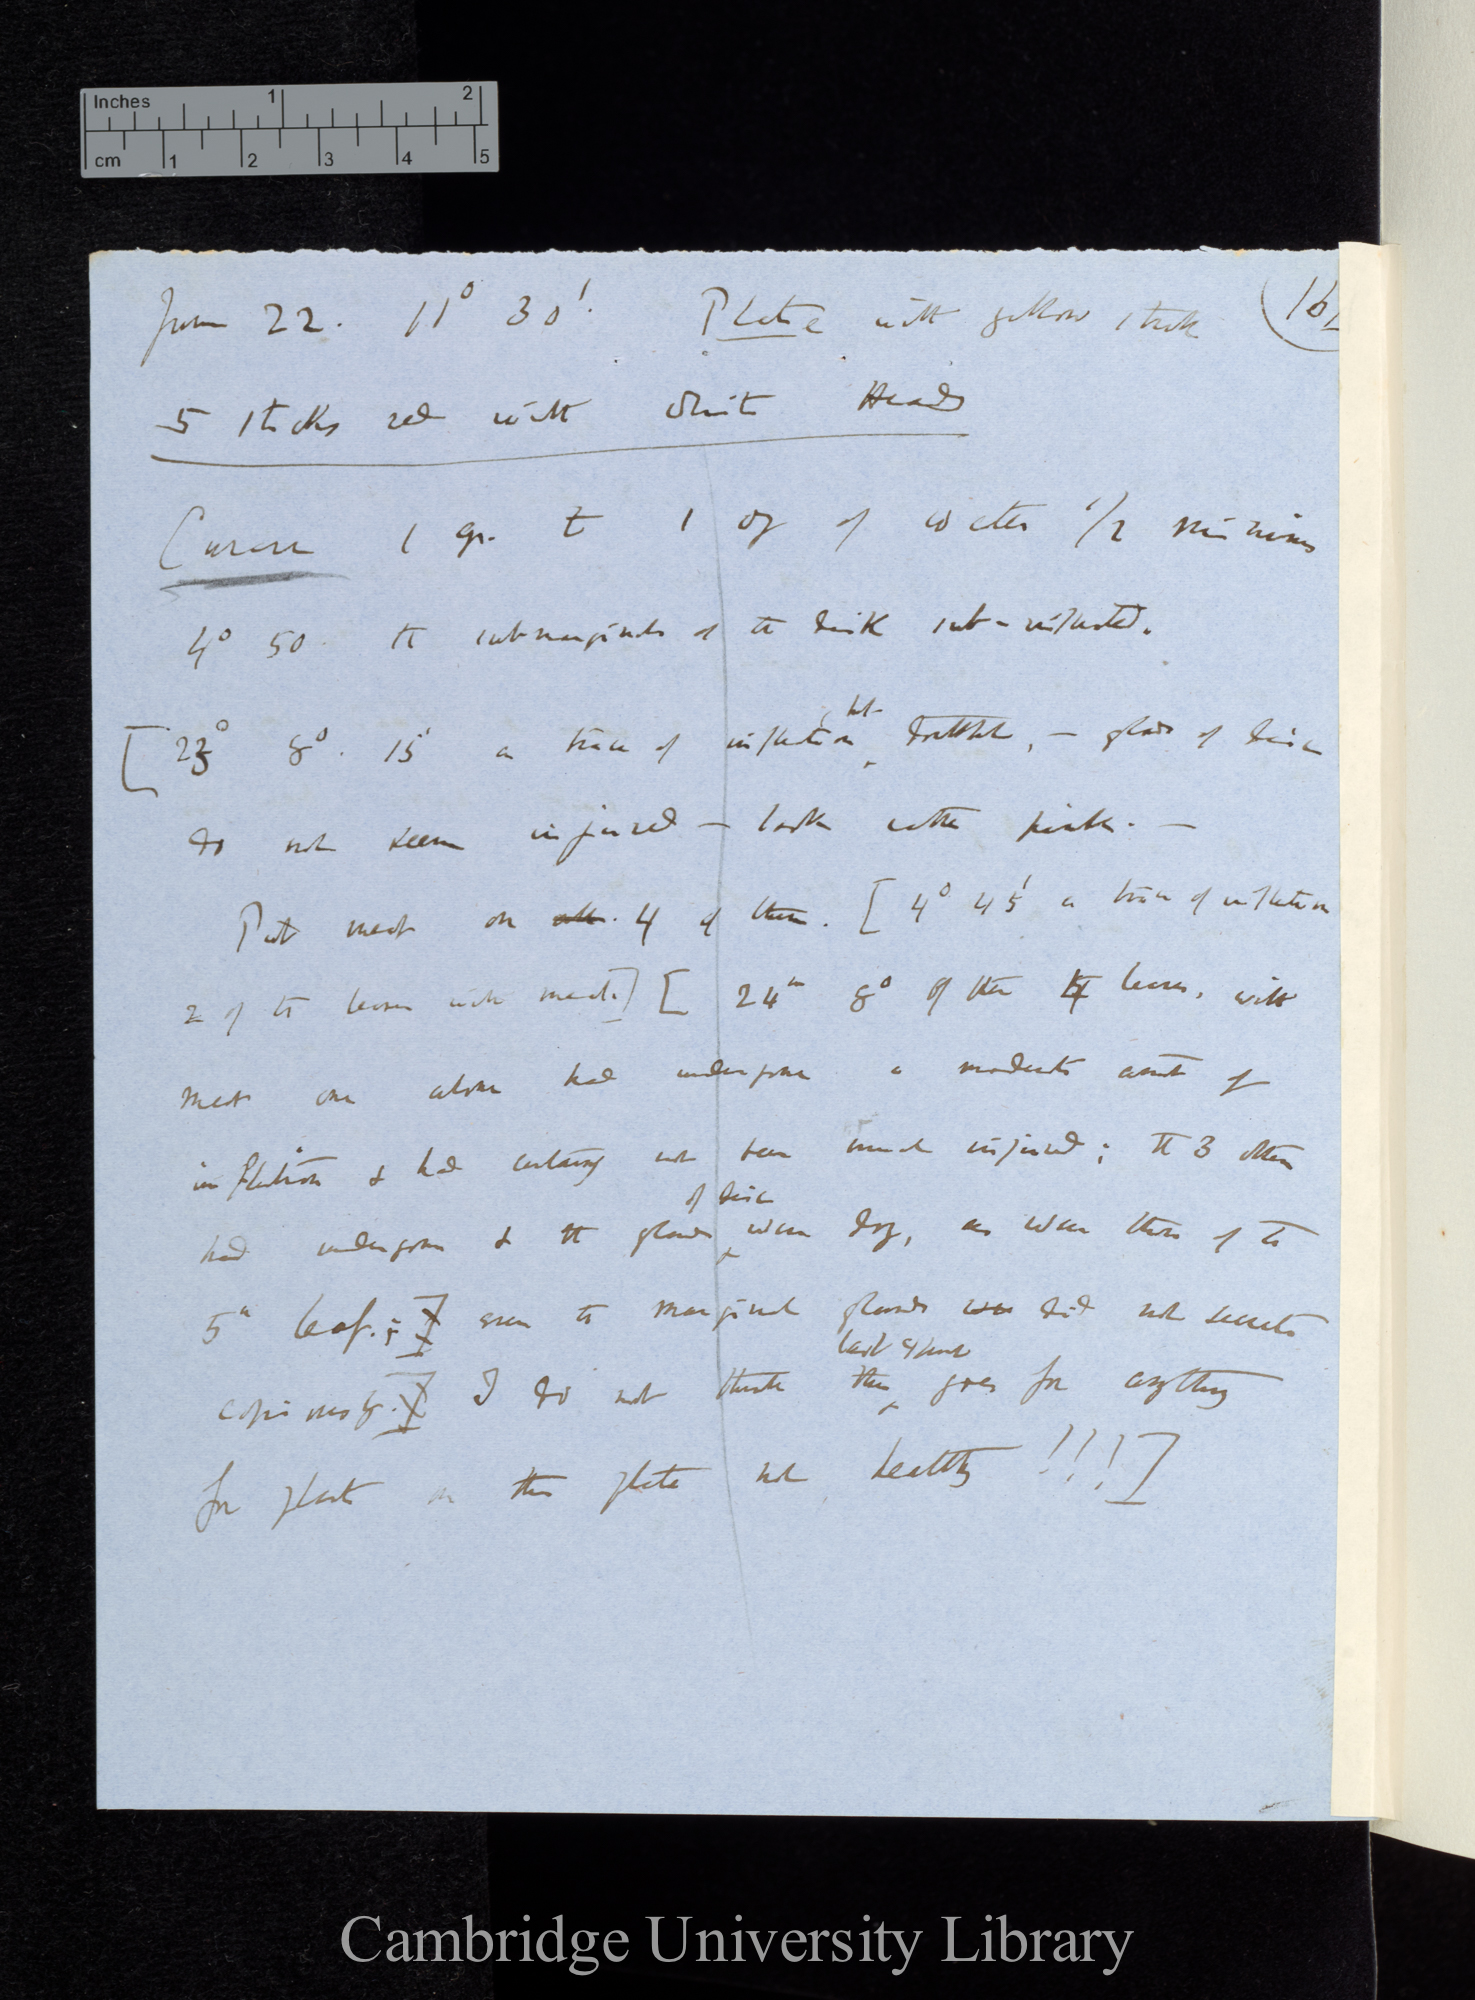 Inches 1 2
cm 1 2 3 4 5
June 22. 11° 30'. Plate with yellow stick (16
5 sticks red with White Heads
Curare 1 gr. to 1 oz of water 1/2 minims
4° 50' the submarginals of the disk sub-inflected.
[23° 8°. 15' a trace of inflection, but doubtful, — glands of disc
do not seem injured — look rather pinker. —
Put meat on 4 of them. [4° 45' a trace of inflection
2 of the leaves with meat.] [24th 8° of the 4 leaves, with
meat one alone had undergone a moderate amount of
inflection & had certainly not been much injured; the 3 others
had undergone & the glands of disc were dry, as were those of the
5th leaf.; even the marginal glands did not secrete
copiously. I do not think this last experiment goes for anything
for plants on this plate not healthy !!!]
Cambridge University Library